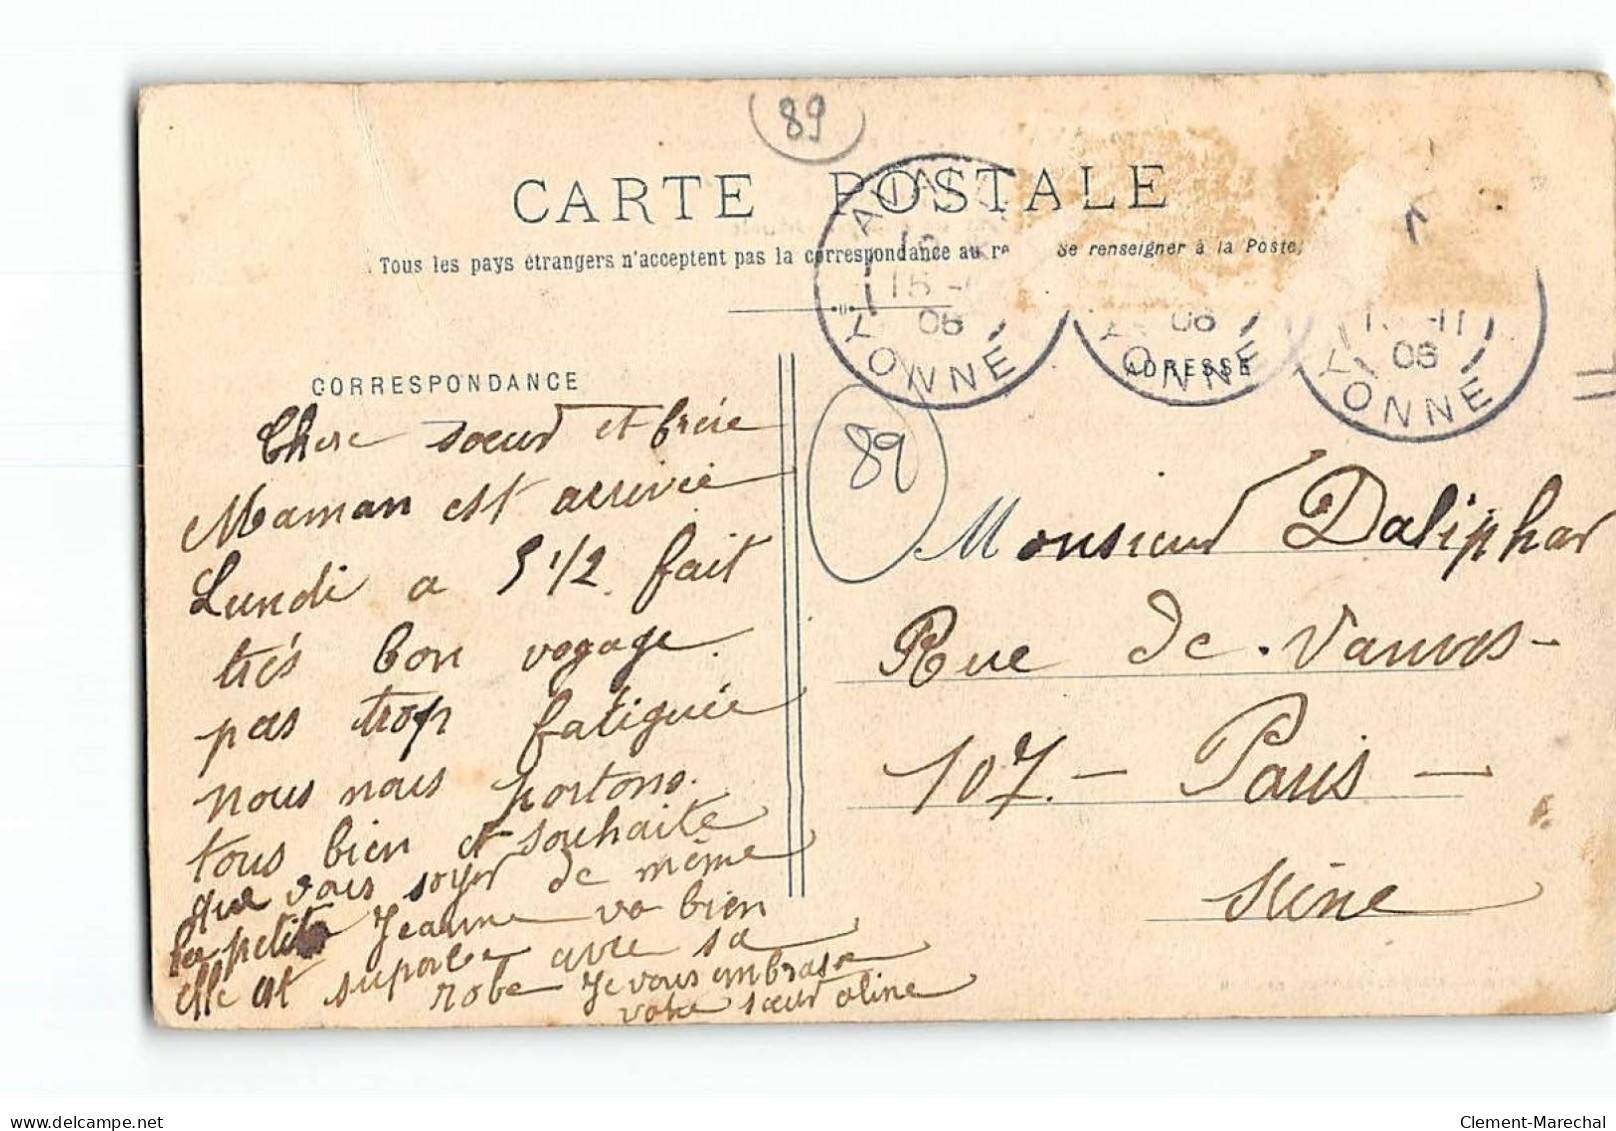 89
CARTE POSTALE
Tous les pays étrangers n'acceptent pas la correspondance au re Se renseigner à la Poste,
06
YONNE
06
YONNE
06
YONNE
CORRESPONDANCE
ADRESSE
Chere soeur et frère
Maman est arrivée
Lundi a 5 1/2 fait
très bon voyage.
pas trop fatiguée
nous nous portons.
tous bien et souhaite
que vous soyer de même
la petite Jeanne va bien
elle est superbe avec sa
robe Je vous embrasse
votre sœur oline
89
Monsieur Daliphar
Rue de Vanves-
107. - Paris -
Seine
delcampe.net
Clement-Marechal